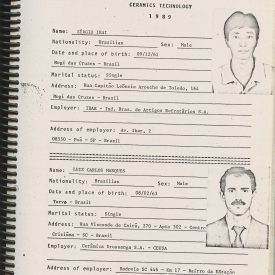 CERAMICS TECHNOLOGY
1989
Name: SÉRGIO IBAT
Nationality: Brazilian Sex: Male
Date and place of birth: 09/12/61
Mogi das Cruzes - Brazil
Marital status: Single
Address: Rua Capitão Leôncio Arouche de Toledo, 164
Mogi das Cruzes - Brazil
Employer: IBAR - Ind. Bras. de Artigos Refratários S.A.
Address of employer: Av. Ibar, 2
08550 - Poá - SP - Brazil
Name: LUIZ CARLOS MARQUES
Nationality: Brazilian Sex: Male
Date and place of birth: 08/02/63
Torvo - Brazil
Marital status: Single
Address: Rua Visconde de Cairú, 270 - Aptº 302 - Centro
Criciúma - SC - Brazil
Employer: Cerâmica Urussanga S.A. - CEUSA
Address of employer: Rodovia SC 446 - Km 17 - Bairro da Estação